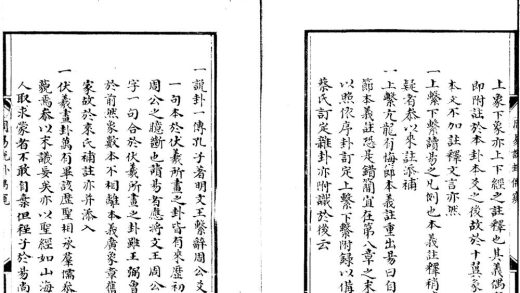 上彖下象亦上下經之註釋也其義偶
即附註於本卦本爻之後故於十翼彖
本文不加註釋文言亦然
一上繫下繫讀易之凡例也本義註釋稍
疑者叅以來註添補
一上繫亢龍有悔即本義註重出易曰自
節本義註恐是錯簡宜在第八章之末
以照依序卦訂定上繫下繫附錄以備
蔡氏訂定雜卦亦附識於後云
一說卦一傳孔子著明文王繫辭周公爻
一句本於伏羲所畫之卦皆有來歷初
周公之臆斷也讀易者應將文王周公
字一句合於伏羲所畫之卦雖王弼曾
於前然象數本不相離本義廣象章舊
家故於來氏補註亦并添入
一伏羲畫卦萬有畢該歷聖相承羣儒叅
藐焉叅以末議妄矣亦以聖經如山海
人取求蒙者不敢自棄但程子於易尚